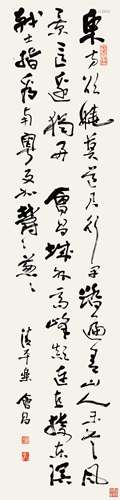 東方欲曉莫道君行早踏遍青山人未老風
景這邊獨好會昌城外高峰顛連直接東溟
戰士指看南粵更加鬱〻蔥〻
清平樂會昌